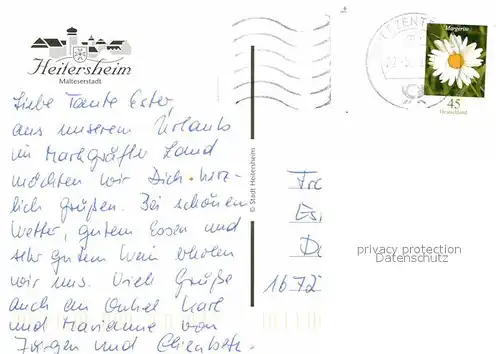 Heitersheim
Malteserstadt
Liebe Tante Ester,
aus unserem Urlaub
im Markgräfler Land
möchten wir Dich herz-
lich grüßen. Bei schönem
Wetter, gutem Essen und
sehr gutem Wein erholen
wir uns. Viele Grüße
auch an Onkel Karl
und Marianne von
Jürgen und Elisabeth.
© Stadt Heitersheim
Margerite
45
Deutschland
1672
privacy protection
Datenschutz